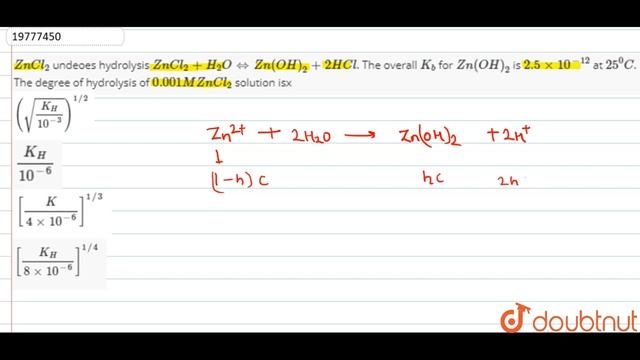 19777450
ZnCl₂ undeoes hydrolysis ZnCl₂ + H₂O ⇔ Zn(OH)₂ + 2HCl. The overall K_b for Zn(OH)₂ is 2.5 × 10⁻¹² at 25⁰C.
The degree of hydrolysis of 0.001M ZnCl₂ solution isx
(√(K_H/10⁻³))^1/2
K_H/10⁻⁶
[K/(4 × 10⁻⁶)]^1/3
[K_H/(8 × 10⁻⁶)]^1/4
Zn²⁺ + 2H₂O ⟶ Zn(OH)₂ + 2H⁺
(1-h) C hC 2h
doubtnut